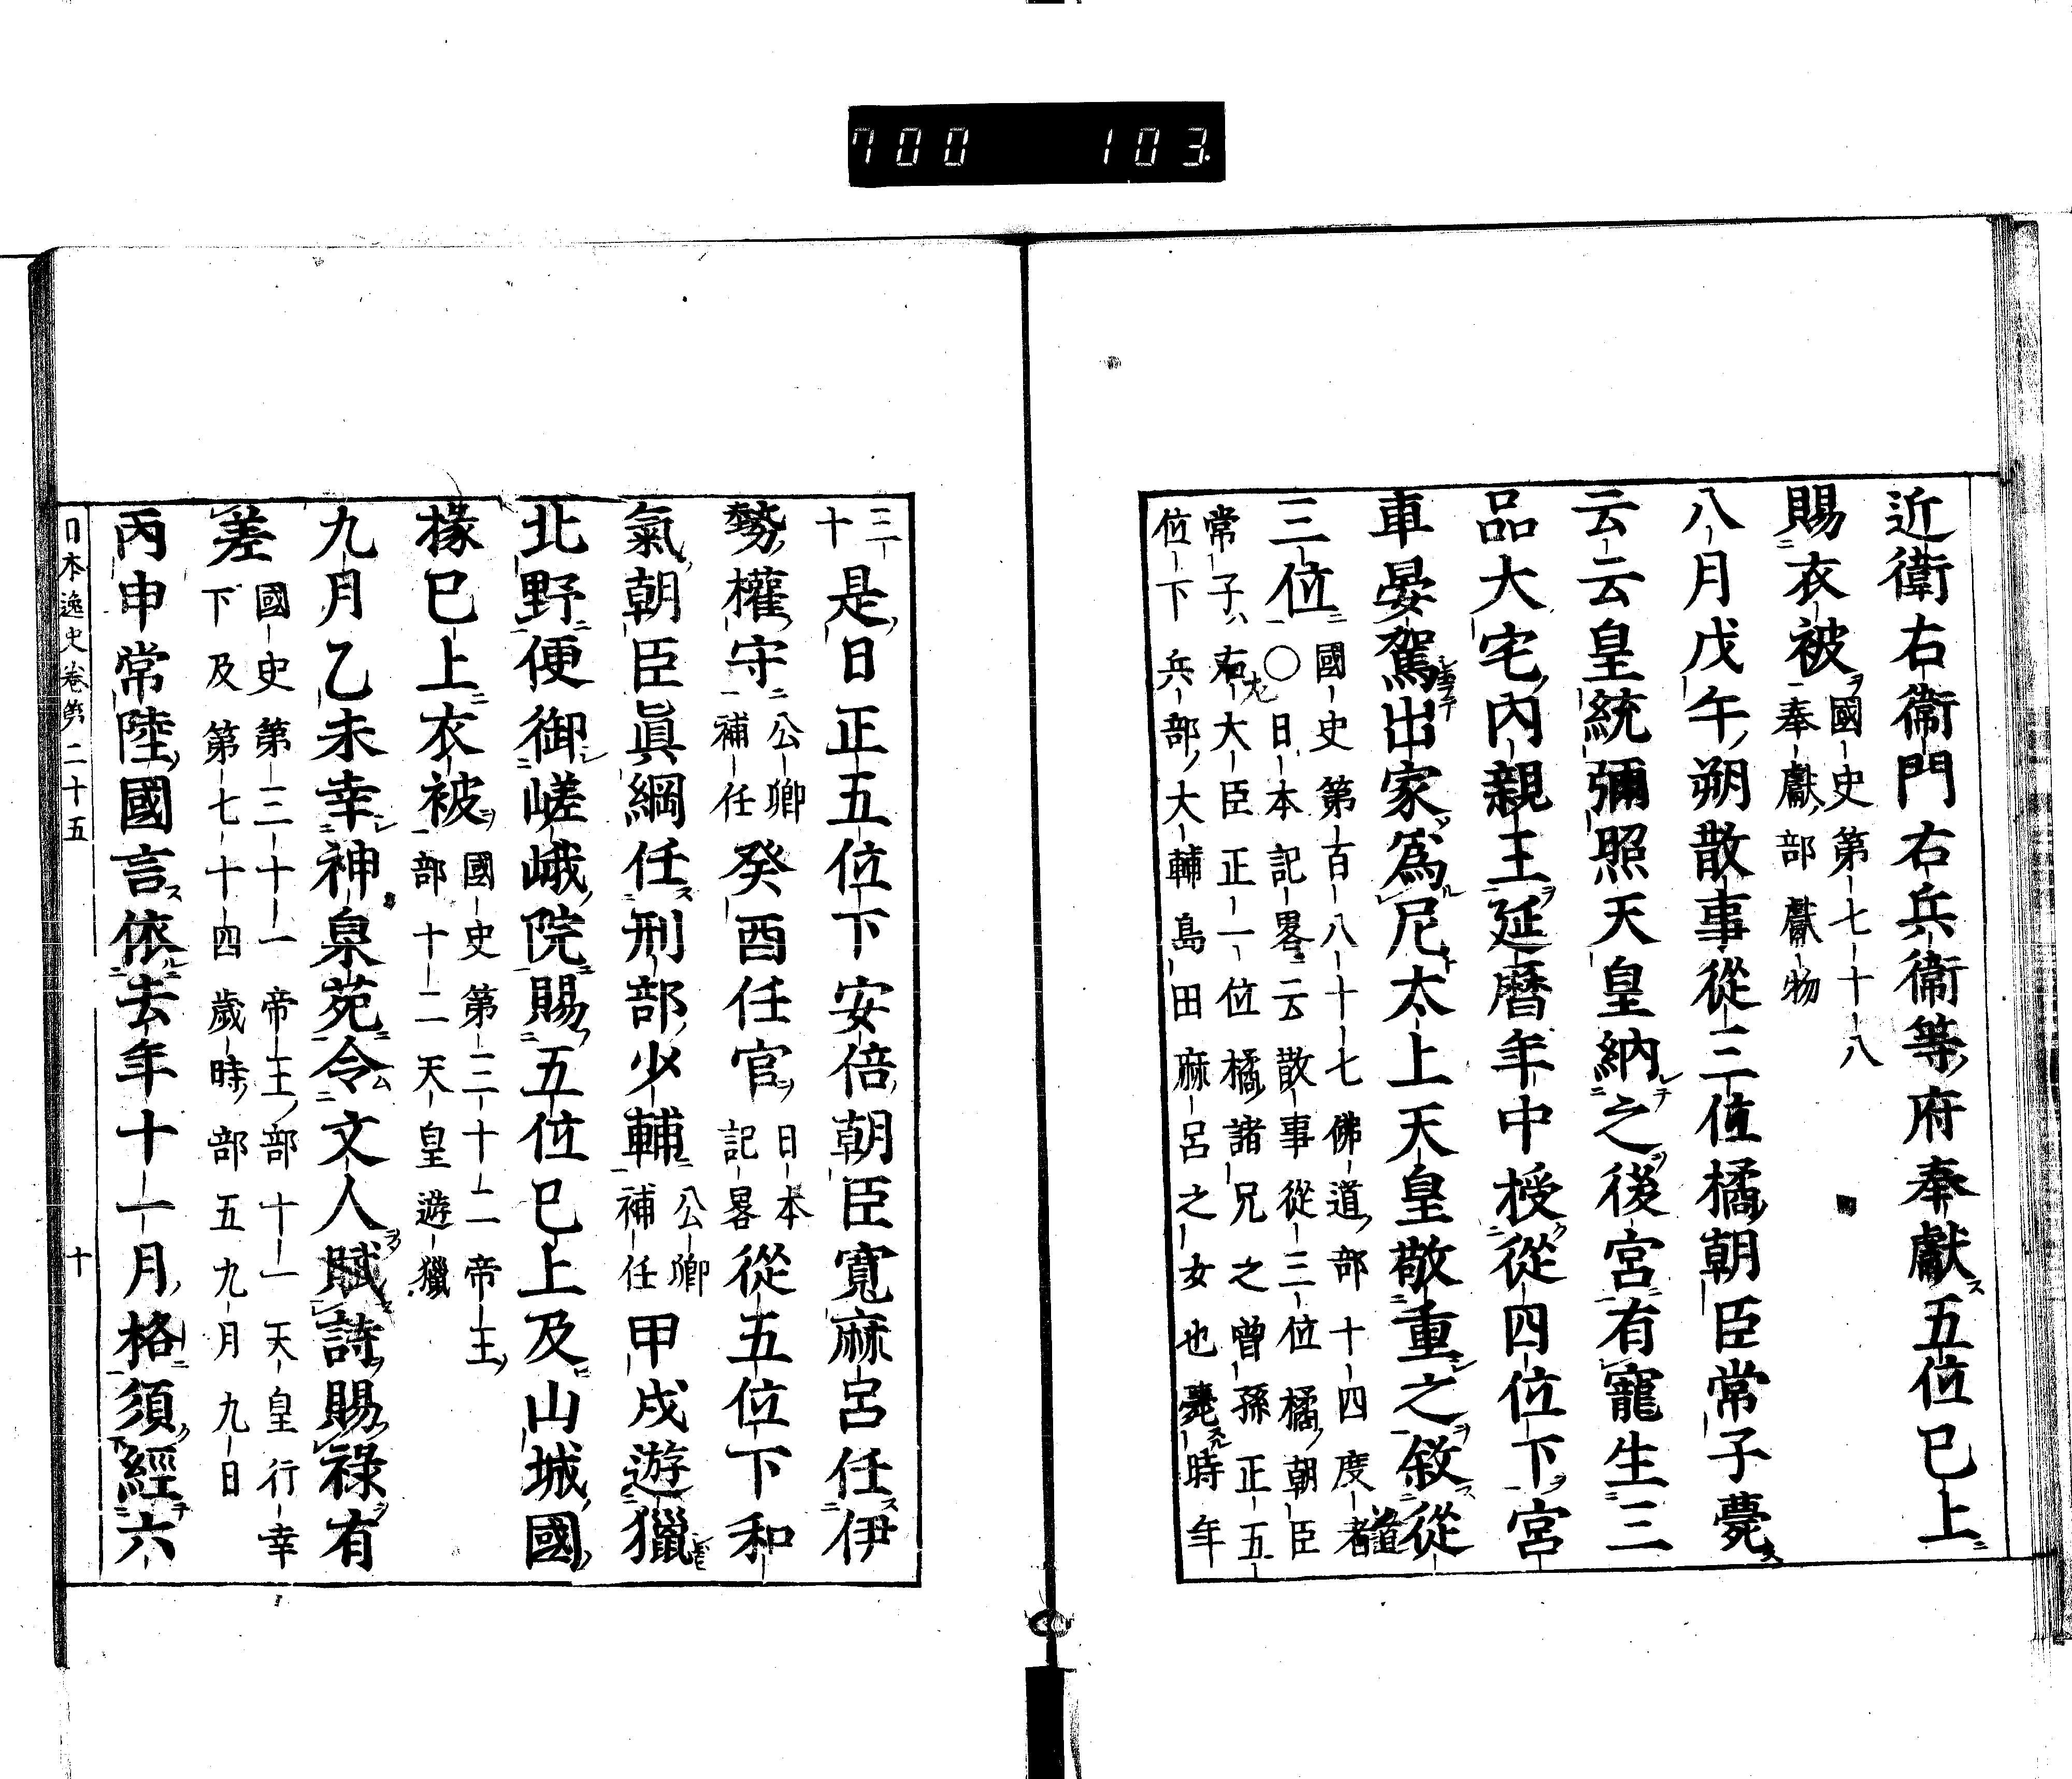 700 103.
近衛右衞門右兵衞等府奉獻五位已上
賜衣被國史第七十八
奉獻部獻物
八月戊午朔散事從三位橘朝臣常子薨
云云皇統彌照天皇納之後宮有寵生三
品大宅內親王延曆年中授從四位下宮
車晏駕出家爲尼太上天皇敬重之敘從
三位國史第百八十七佛道部十四度者
〇日本記畧云散事從三位橘朝臣
常子右大臣正一位橘諸兄之曾孫正五
位下兵部大輔島田麻呂之女也薨時年
三
十是日正五位下安倍朝臣寬麻呂任伊
勢權守公卿
補任癸酉任官日本
記畧從五位下和
氣朝臣眞綱任刑部少輔公卿
補任甲戌遊獵
北野便御嵯峨院賜五位已上及山城國
掾已上衣被國史第三十二帝王
部十二天皇遊獵
九月乙未幸神泉苑令文人賦詩賜祿有
差國史第三十一帝王部十一天皇行幸
下及第七十四歲時部五九月九日
丙申常陸國言依去年十一月格須經六
日本逸史卷第二十五 十